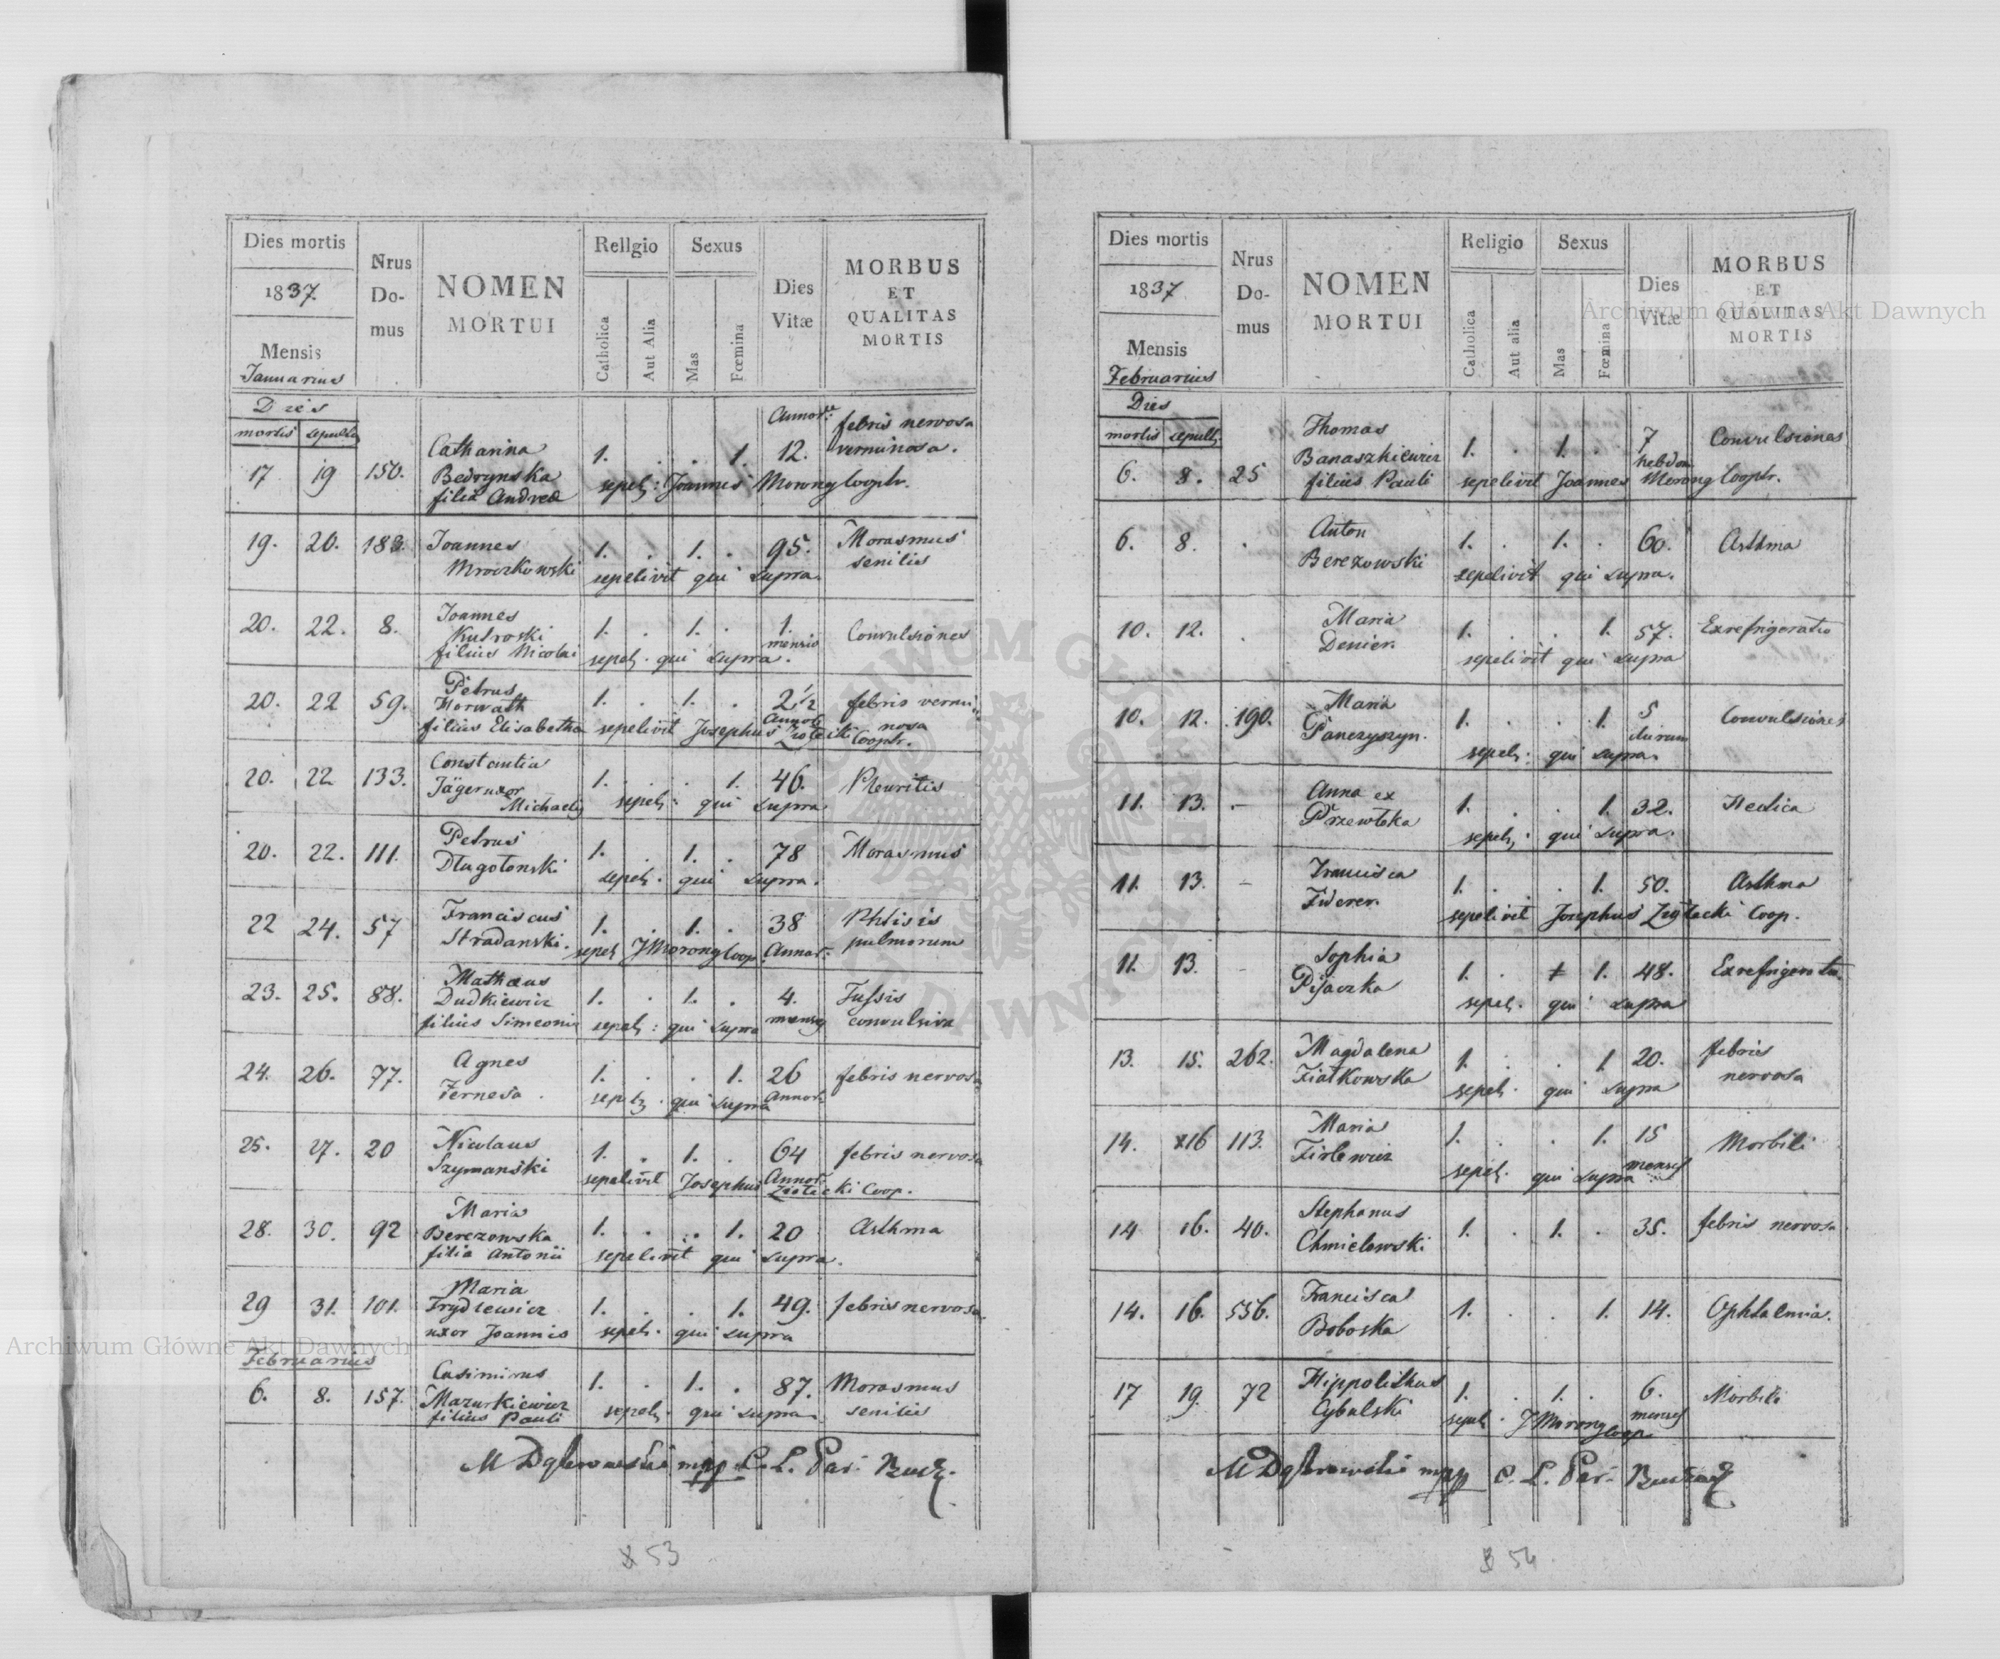 Dies mortis
1837.
Mensis
Januarius
Nrus
Do-
mus
NOMEN
MORTUI
Religio
Catholica
Aut Alia
Sexus
Mas
Fœmina
Dies
Vitæ
MORBUS
ET
QUALITAS
MORTIS
Dies
mortis sepult
17 19 150. Catharina 1. . . 1. Annor. 12. febris nervosa
verminosa.
Bedrynska
filia Andreæ sepel: Joannes Morong Cooptr.
19. 20. 183. Joannes 1. . 1. . 95. Morasmus
Mroczkowski sepelivit qui supra. senilis
20. 22. 8. Joannes 1. . 1. . 1. Convulsiones
mensis
filius Nicolai sepel. qui supra.
20. 22 59. Petrus 1. . 1. . 2 1/2 febris vermi
Horwath Annor. nosa
filius Elisabetha sepelivit Josephus Cooptr.
20. 22 133. Constantia 1. . . 1. 46. Pleuritis
Jäger uxor
Michaelis sepel: qui supra.
20. 22. 111. Petrus 1. . 1. . 78 Morasmus
Długołonski sepel. qui supra.
22 24. 57 Franciscus 1. . 1. . 38 Phtisis
Stradanski. sepel JMorong Coop. Annor: pulmonum
23. 25. 88. Mathæus 1. . 1. . 4. Tussis
Dudkiewicz menses convulsiva
filius Simeonis sepel: qui supra
24. 26. 77. Agnes 1. . . 1. 26 febris nervosa
Fernesa . sepel. qui supra Annor.
25. 27. 20 Nicolaus 1. . 1. . 64 febris nervosa
Szymanski sepelivit Josephus Annor. Ziołecki Coop.
28. 30. 92 Maria 1. . . 1. 20 Asthma
Berezowska
filia Antonii sepelivit qui supra.
29 31. 101. Maria 1. . . 1. 49. febris nervosa.
Frydlewicz
uxor Joannis sepel. qui supra
Februarius
6. 8. 157. Casimirus 1. . 1. . 87. Morasmus
Mazurkiewicz senilis
filius Pauli sepel. qui supra.
M Dąbrowski mpp C. L. Par. Bucz.
53
Dies mortis
1837
Mensis
Februarius
Nrus
Do-
mus
NOMEN
MORTUI
Religio
Catholica
Aut alia
Sexus
Mas
Fœmina
Dies
Vitæ
MORBUS
ET
QUALITAS
MORTIS
Dies
mortis sepult.
6. 8. 25 Thomas 1. . 1. . 7 Convulsiones
Banaszkiewicz hebdom
filius Pauli sepelivit Joannes Morong Cooptr.
6. 8. . Anton 1. . 1. . 60. Asthma
Berezowski sepelivit qui supra.
10. 12. . Maria 1. . . 1. 57. Exrefrigeratio
Denier. sepelivit qui supra
10. 12. 190. Maria 1. . . 1. 5 Convulsiones
Panczyszyn. dierum
sepel: qui supra.
11. 13. - Anna ex 1. . . 1. 32. Hectica
Przewłoka sepel: qui supra.
11. 13. - Francisca 1. . . 1. 50. Asthma
Fiderer. sepelivit Josephus Ziołecki Coop.
11. 13. - Sophia 1. . 1. 48. Exrefrigeratio
Pisaczka sepel. qui supra
13. 15. 262. Magdalena 1. . . 1 20. febris
Fiałkowska sepel. qui supra nervosa
14. 16 113. Maria 1. . . 1. 15 Morbili
Firlewicz sepel. qui supra menses
14 16. 40. Stephanus 1. . 1. . 35. febris nervosa
Chmielowski
14. 16. 556. Francisca 1. . . 1. 14. Ophtalmia.
Boboska
17 19. 72 Hippolithus 1. . 1. . 6. Morbili
Cybulski sepel. JMorong Coop. menses
M Dąbrowski mpp C. L. Par.
54
Archiwum Główne Akt Dawnych
Archiwum Główne Akt Dawnych